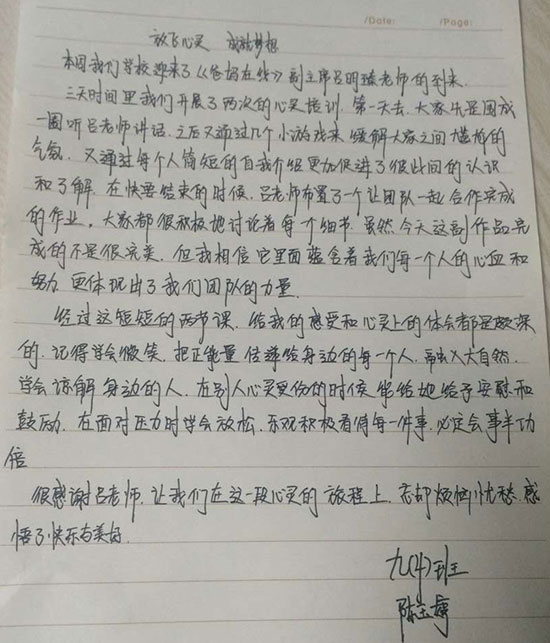 /Date: /Page:
放飞心灵 成就梦想
本周我们学校迎来了《爸妈在线》副主席吕明臻老师的到来.
三天时间里我们开展了两次的心灵培训. 第一天去. 大家先是围成
一圈听吕老师讲话. 之后又通过几个小游戏来缓解大家之间尴尬的
气氛. 又通过每个人简短的自我介绍更加促进了彼此间的认识
和了解. 在快要结束的时候. 吕老师布置了一个让团队一起合作完成
的作业. 大家都很积极地讨论着每一个细节. 虽然今天这副作品完
成的不是很完美. 但我相信它里面蕴含着我们每一个人的心血和
努力. 更体现出了我们团队的力量.
经过这短短的两节课. 给我的感受和心灵上的体会都是颇深
的. 记得学会微笑. 把正能量传递给身边的每一个人. 融入大自然.
学会谅解身边的人. 在别人心灵受伤的时候能给他给予安慰和
鼓励. 在面对压力时学会放松. 乐观积极看待每一件事. 必定会事半功
倍
很感谢吕老师. 让我们在这一段心灵的旅程上. 忘却烦恼忧愁. 感
悟了快乐与美好.
九(4)班
陈